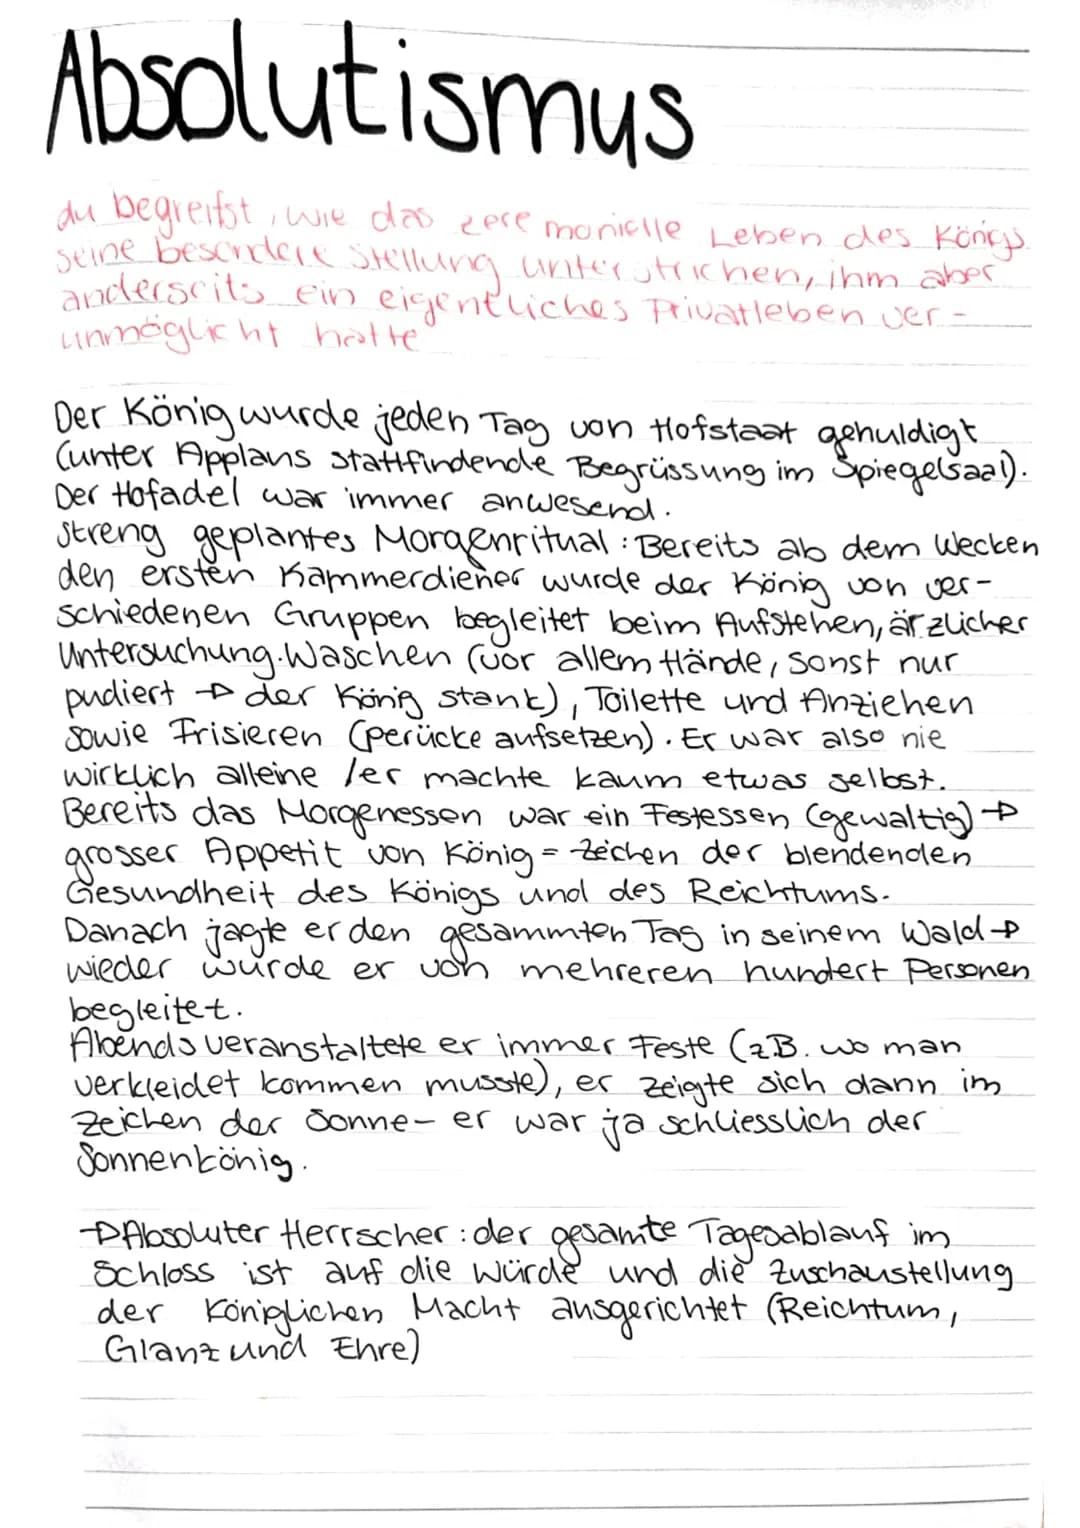 Absolutismus
du begreifst, wie das zeremonielle Leben des Königs
seine besondere Stellung unterstrichen, ihm aber
anderseits ein eigentliches Privatleben ver-
unmöglicht hatte
Der König wurde jeden Tag von Hofstaat gehuldigt
(unter Applans stattfindende Begrüssung im Spiegelsaal).
Der Hofadel war immer anwesend.
Streng geplantes Morgenritual: Bereits ab dem Wecken
den ersten Kammerdiener wurde der König von ver-
schiedenen Gruppen begleitet beim Aufstehen, ärzlicher
Untersuchung. Waschen (vor allem Hände, sonst nur
pudiert → der König stank), Toilette und Anziehen
sowie Frisieren (perücke aufsetzen). Er war also nie
wirklich alleine / er machte kaum etwas selbst.
Bereits das Morgenessen war ein Festessen (gewaltig) →
grosser Appetit von König = Zeichen der blendenden
Gesundheit des Königs und des Reichtums.
Danach jagte er den gesammten Tag in seinem Wald →
wieder wurde er von mehreren hundert Personen
begleitet.
Abends veranstaltete er immer Feste (z.B. wo man
verkleidet kommen musste), er zeigte sich dann im
Zeichen der Sonne – er war ja schliesslich der
Sonnenkönig.
→ Absoluter Herrscher: der gesamte Tagesablauf im
Schloss ist auf die Würde und die Zuschaustellung
der Königlichen Macht ausgerichtet (Reichtum,
Glanz und Ehre)